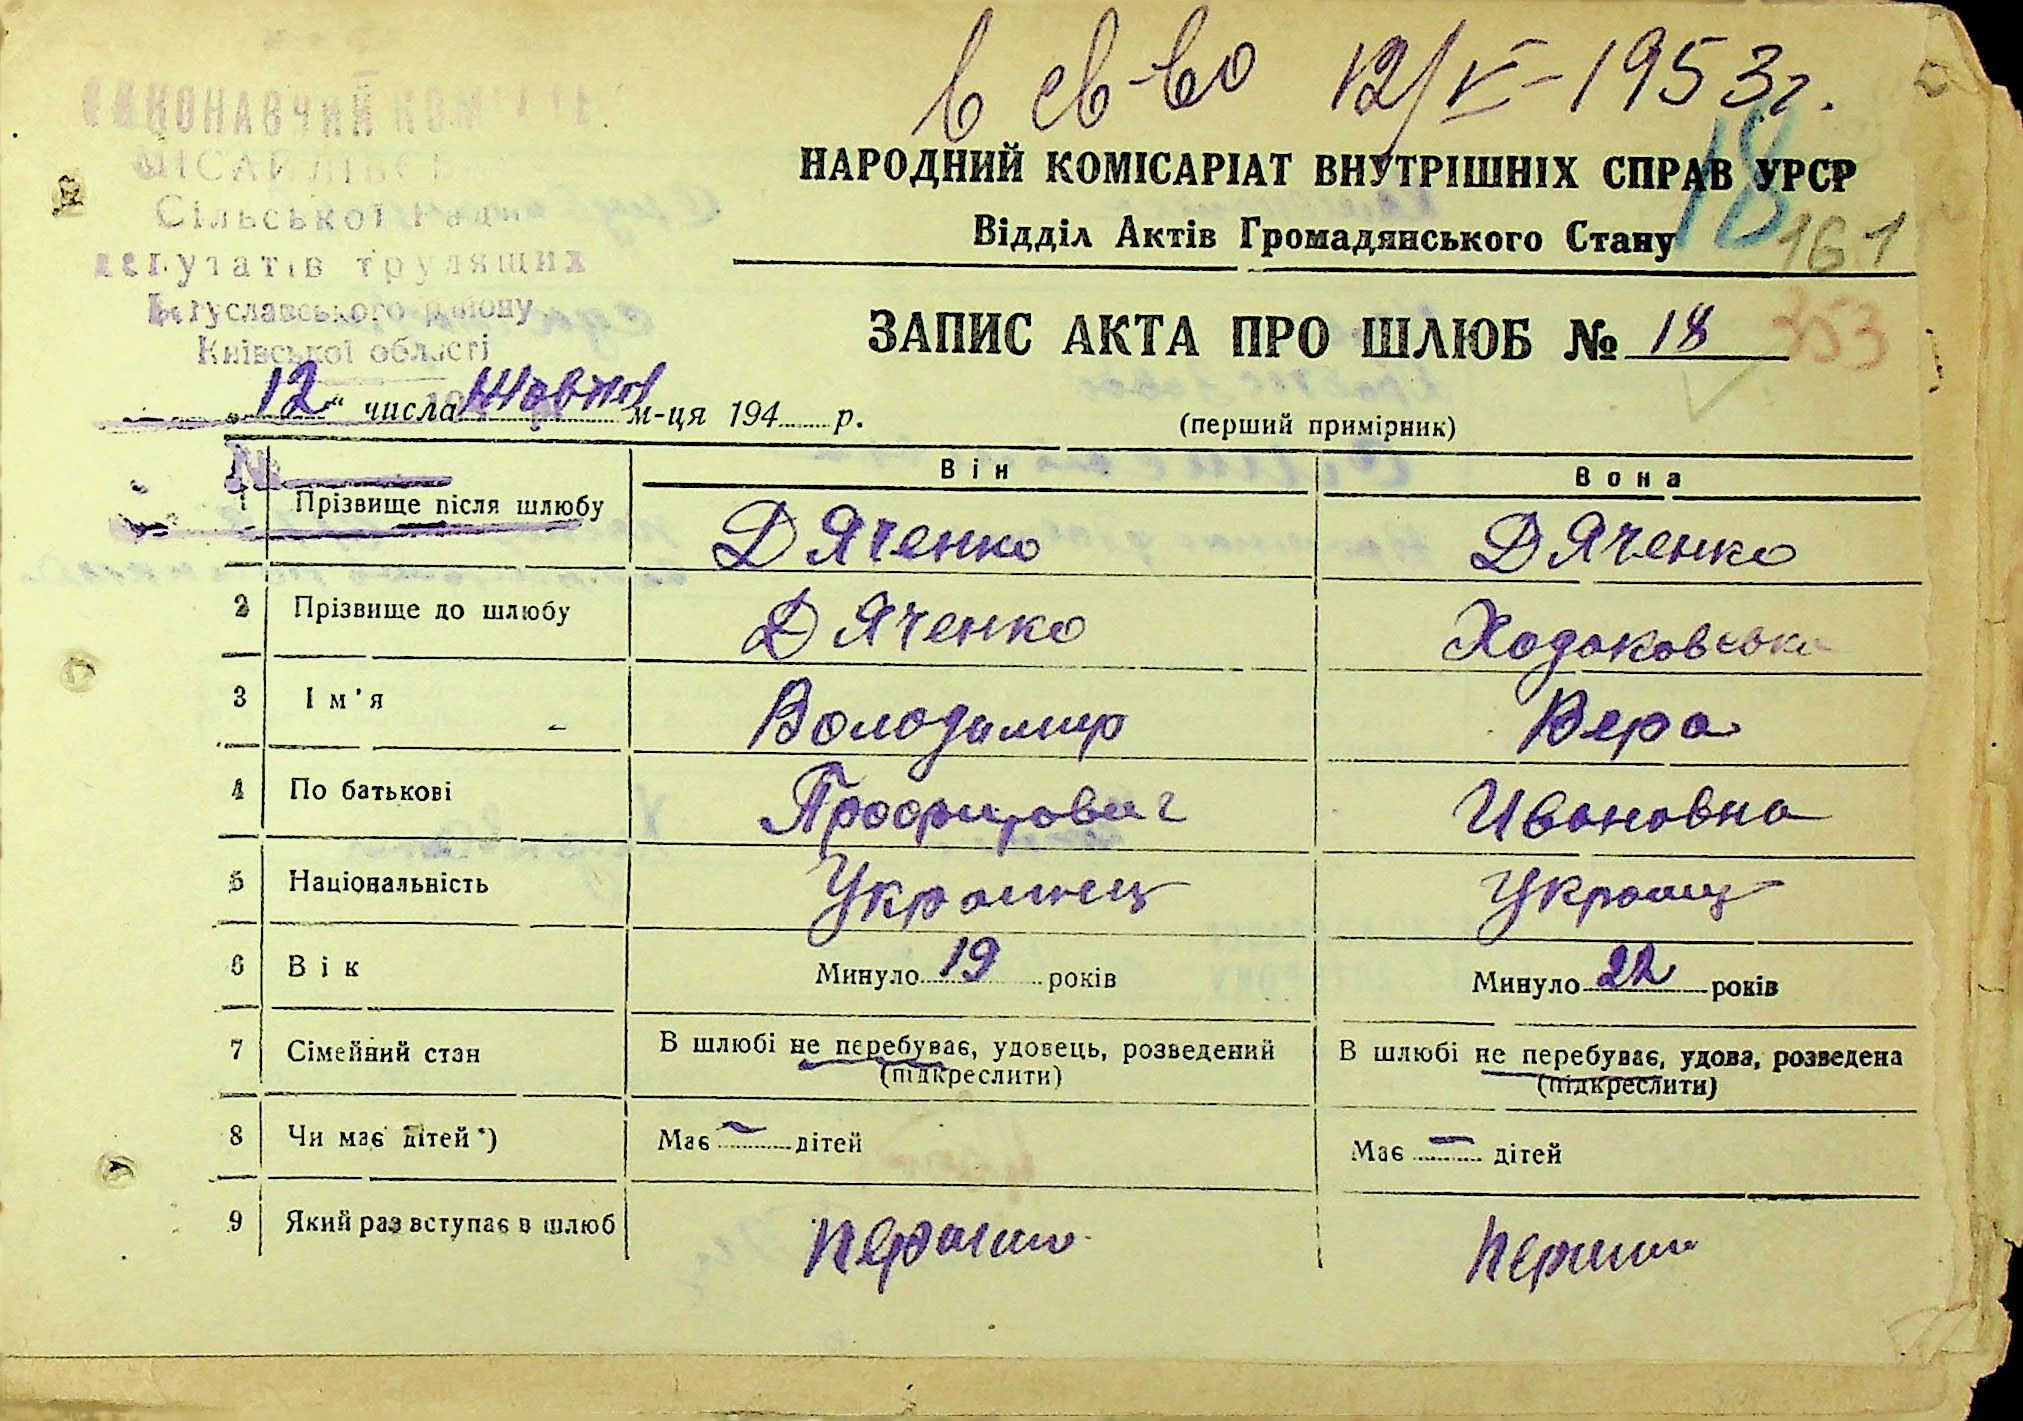 в св-во 12/V-1953г.
ВИКОНАВЧИЙ КОМІТЕТ
МІСАЙЛІВСЬКОЇ
Сільської Ради
депутатів трудящих
Богуславського району
Київської області
НАРОДНИЙ КОМІСАРІАТ ВНУТРІШНІХ СПРАВ УРСР
Відділ Актів Громадянського Стану
18
161
ЗАПИС АКТА ПРО ШЛЮБ № 18
353
„12“ числа жовтня м-ця 194 р.
(перший примірник)
№
Він Вона
1 Прізвище після шлюбу ДЯченко ДЯченко
2 Прізвище до шлюбу ДЯченко Ходаковська
3 Ім'я Володимир Вера
4 По батькові Ивановна
5 Національність Украинец Украинц
6 Вік Минуло 19 років Минуло 22 років
7 Сімейний стан В шлюбі не перебуває, удовець, розведений В шлюбі не перебуває, удова, розведена
(підкреслити) (підкреслити)
8 Чи має дітей*) Має – дітей Має – дітей
9 Який раз вступає в шлюб